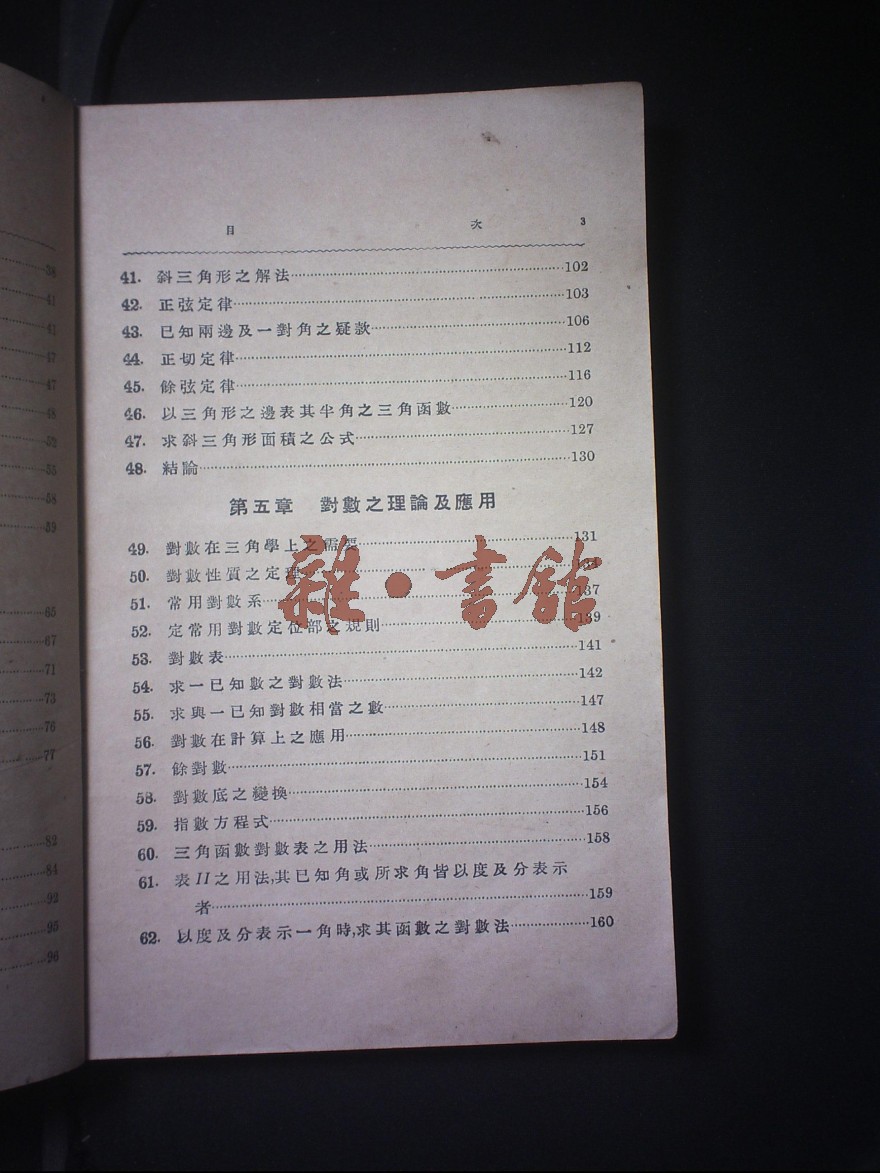 目 次 3
41. 斜三角形之解法……102
42. 正弦定律……103
43. 已知兩邊及一對角之疑款……106
44. 正切定律……112
45. 餘弦定律……116
46. 以三角形之邊表其半角之三角函數……120
47. 求斜三角形面積之公式……127
48. 結論……130
第五章 對數之理論及應用
49. 對數在三角學上之需要……131
50. 對數性質之定理……134
51. 常用對數系……137
52. 定常用對數定位部之規則……139
53. 對數表……141
54. 求一已知數之對數法……142
55. 求與一已知對數相當之數……147
56. 對數在計算上之應用……148
57. 餘對數……151
58. 對數底之變換……154
59. 指數方程式……156
60. 三角函數對數表之用法……158
61. 表II之用法,其已知角或所求角皆以度及分表示
者……159
62. 以度及分表示一角時,求其函數之對數法……160
雜·書館
38
41
41
47
47
48
52
55
58
59
65
67
71
73
76
77
82
84
92
95
96